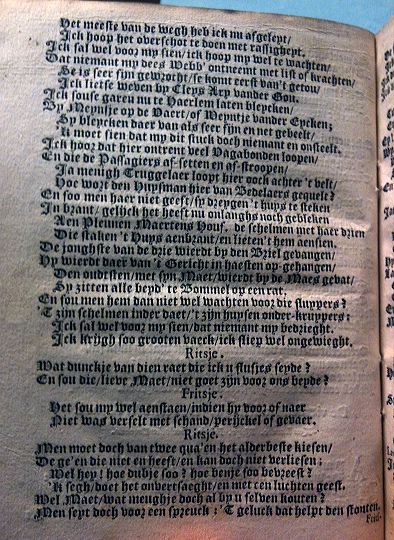 Het meeste van de wegh heb ick nu afgelept/
Ick hoop het overschot te doen met rasligheyt.
Ick sal wel voor my sien/ ick hoop my wel te wachten/
Dat niemant my dees Webb' ontneemt met list of krachten/
Se is seer sijn gewrocht/ se komt eerst van't getou/
Ick lietse weven by Cleys Arp vander Gou.
Ick souse garen nu te Haerlem laten bleycken/
By Meyntje op de Vaert/ of Weyntje vander Eycken;
Sy bleycken daer van als seer sijn en net gebeelt/
'K moet sien dat my dit stuck doch niemant en onsteelt.
Ick hoor dat hier ontrent veel Vagabonden loopen/
En die de Passagiers af-setten en af-stroopen/
Ja menigh Truggelaer loopt hier oock achter 't velt/
Hoe wort den Huysman hier van Bedelaers gequelt?
En soo men haer niet geeft/ sy dreygen 't huys te steken
In brant/ gelijck het heeft nu onlanghs noch gebleken
Aen Pleunen Maertens Houf. de schelmen met haer drien
Die staken 't Huys aenbrant/ en lieten't hem aensien.
De jonghste van de drie wierdt by den Briel gevangen/
Hy wierdt daer van't Gericht in haesten op-gehangen/
Den oudtsten/ met syn Maet/ wierdt by de Maes gevat/
Sy zitten alle beyd' te Bommel op een rat.
En sou men hem dan niet wel wachten voor die sluypers?
'T zijn schelmen inder daet/ 't zijn huysen onder-kruypers:
Ick sal wel voor my sien/ dat niemant my bedrieght.
Ick krijgh soo grooten vaeck/ ick sliep wel ongewieght.
Ritsje.
Wat dunckje van dien raet die ick u flusjes seyde?
En sou die/ lieve Maet/ niet goet zijn voor ons beyde?
Fritsje.
Het sou my wel aenstaen/ indien hy voor of naer
Niet was verselt met schand/ perijckel of gevaer.
Ritsje.
Men moet doch van twee qua'en het alderbeste kiesen/
De ge'en die niet en heeft/ en kan doch niet verliesen;
Wel hey! hoe dubje soo? hoe benje soo bevreest?
'K segh/ doet het onvertsaeght/ en met een luchten geest.
Wel Maet/ wat meughje doch al by u selven kouten?
Men seyt doch voor een spreuck: 'T geluck dat helpt den stouten.